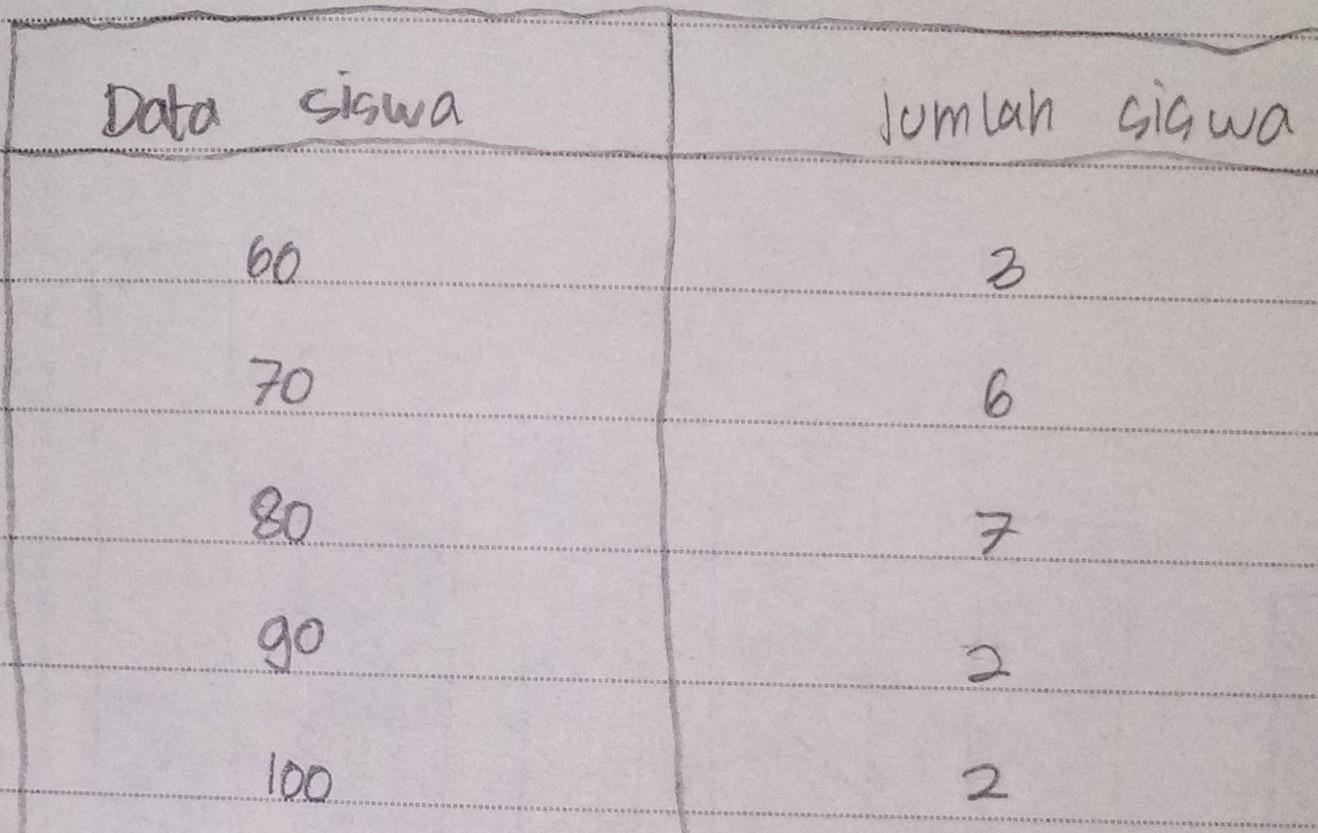 Data siswa Jumlah siswa
60 3
70 6
80 7
90 2
100 2